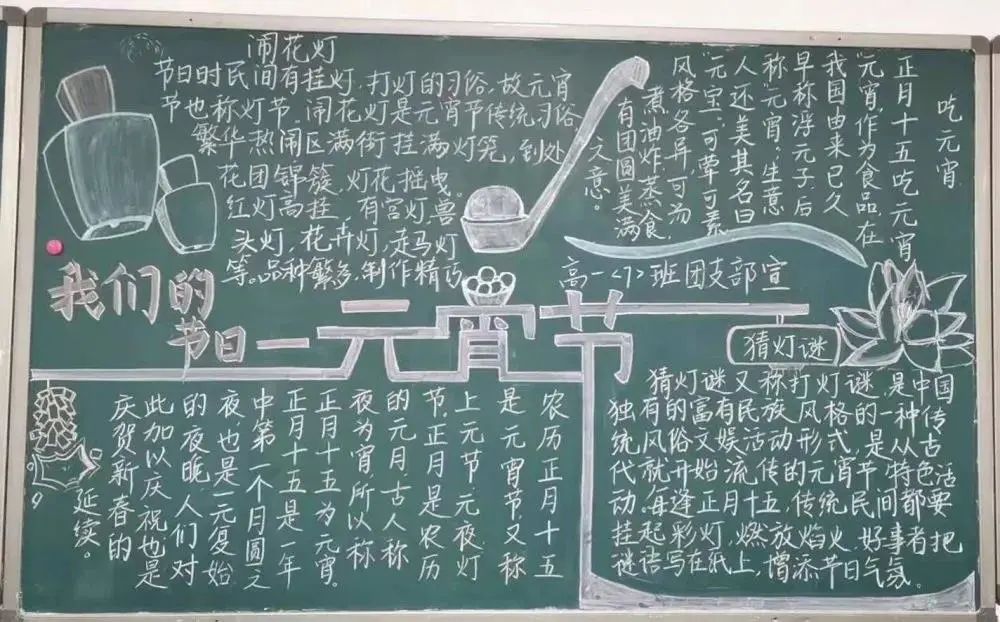 闹花灯
节日时民间有挂灯.打灯的习俗,故元宵
节也称灯节.闹花灯是元宵节传统习俗,
繁华热闹区满街挂满灯笼,到处
花团锦簇,灯花摇曳。
红灯高挂,有宫灯.兽
头灯,花卉灯,走马灯
等。品种繁多,制作精巧
吃元宵
正月十五吃元宵
"元宵,作为食品,在
我国由来已久
早称浮元子,后
称"元宵",生意
人还美其名曰
"元宝",可荤可素
风格各异,可汤
煮油炸蒸食,
有团圆美满
之意。
高一<7>班团支部宣
我们的
节日一元宵节
农历正月十五
是元宵节又称
上元节元夜灯
节.正月是农历
的元月,古人称
夜为宵,所以称
正月十五为元宵。
正月十五是一年
中第一个月圆之
夜,也是一元复始
的夜晚,人们对
此加以庆祝也是
庆贺新春的
延续。
猜灯谜
猜灯谜又称打灯谜,是中国
独有的富有民族风格的一种传
统风俗文娱活动形式,是从古
代就开始流传的元宵节特色活
动。每逢正月十五,传统民间都要
挂起彩灯,燃放焰火,好事者把
谜语写在纸上,增添节日气氛。